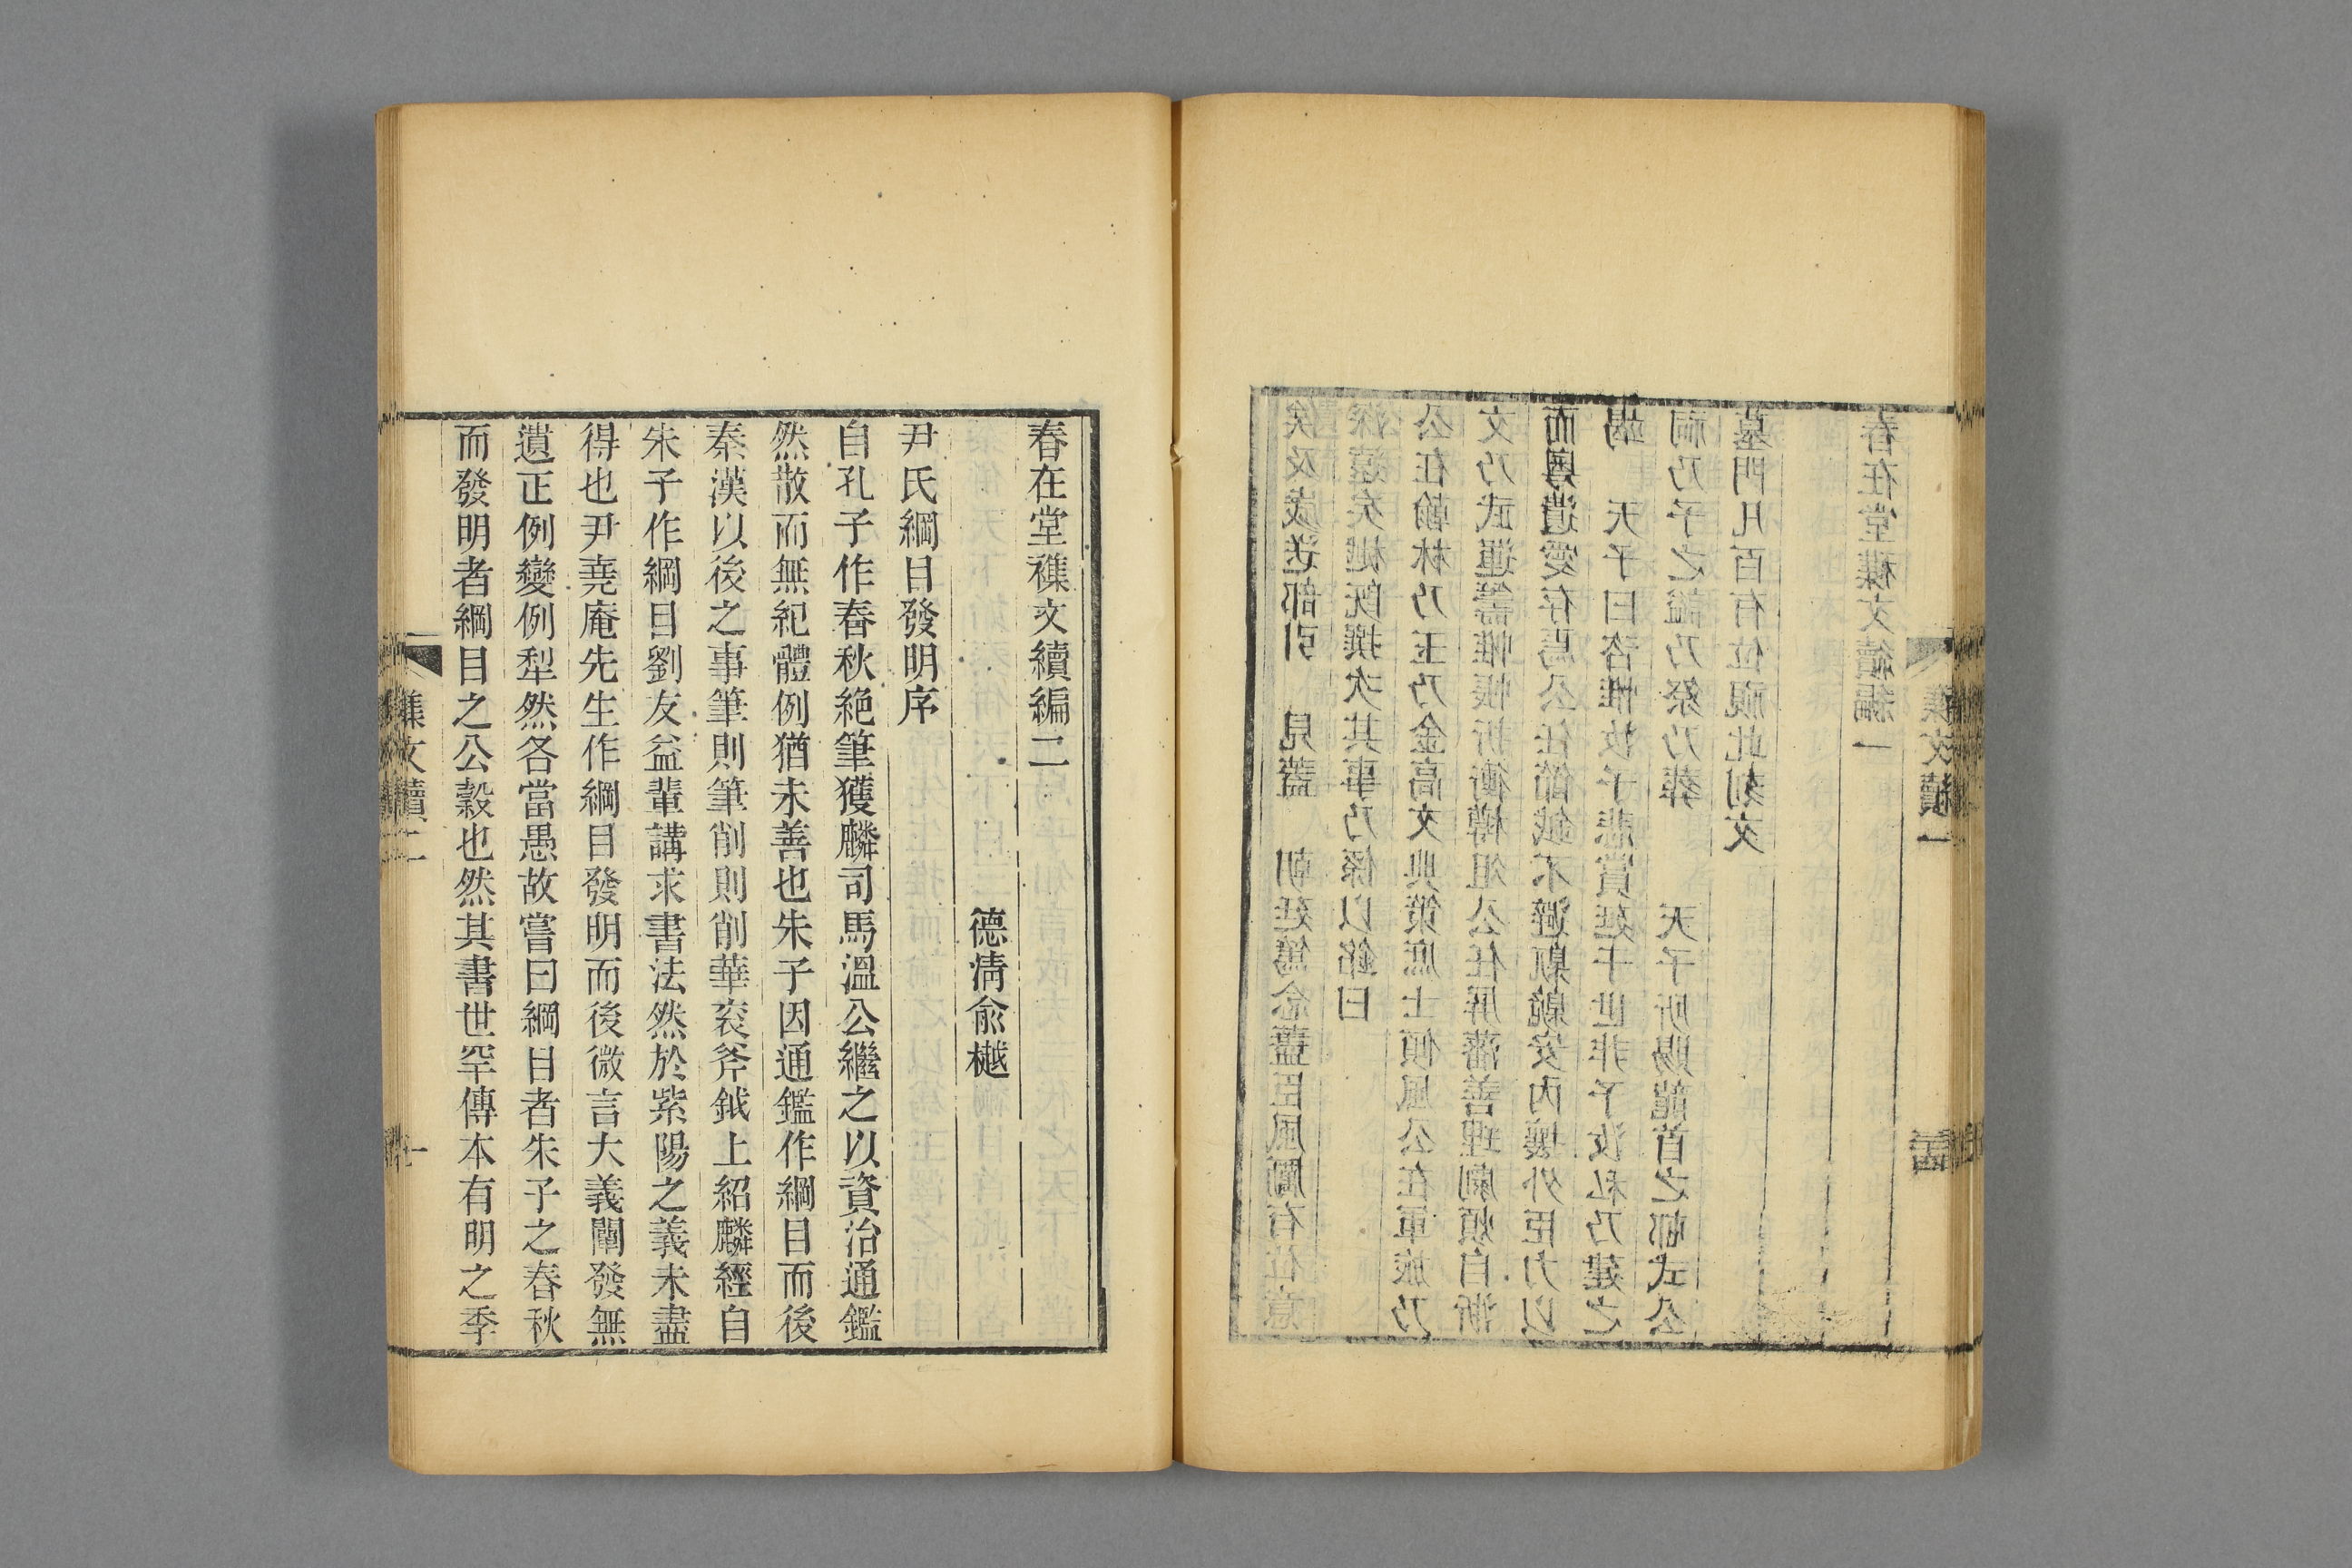 俟及歲送部引　見蓋　朝廷篤念藎臣風厲有位意
深遠矣樾旣撰次其事乃係以銘曰
公在翰林乃玉乃金高文典策庶士傾風公在軍旅乃
文乃武運籌惟帳折衝樽俎公任屏藩善理劇煩自浙
而粵遺愛存焉公任節鉞不避安內壤外臣力以
竭　天子曰咨惟汝予悲賞延于世非予汝私乃建之
祠乃予之諡乃祭乃葬　天子所賜龍首之邨式公
墓門凡百有位視此刻文
春在堂襍文續編一
襍文續一
春在堂襍文續編二
德清俞樾
尹氏綱目發明序
自孔子作春秋絕筆獲麟司馬溫公繼之以資治通鑑
然散而無紀體例猶未善也朱子因通鑑作綱目而後
秦漢以後之事筆則筆削則削華袞斧鉞上紹麟經自
朱子作綱目劉友益輩講求書法然於紫陽之義未盡
得也尹堯庵先生作綱目發明而後微言大義闡發無
遺正例變例犁然各當愚故嘗曰綱目者朱子之春秋
而發明者綱目之公穀也然其書世罕傳本有明之季
襍文續二
一